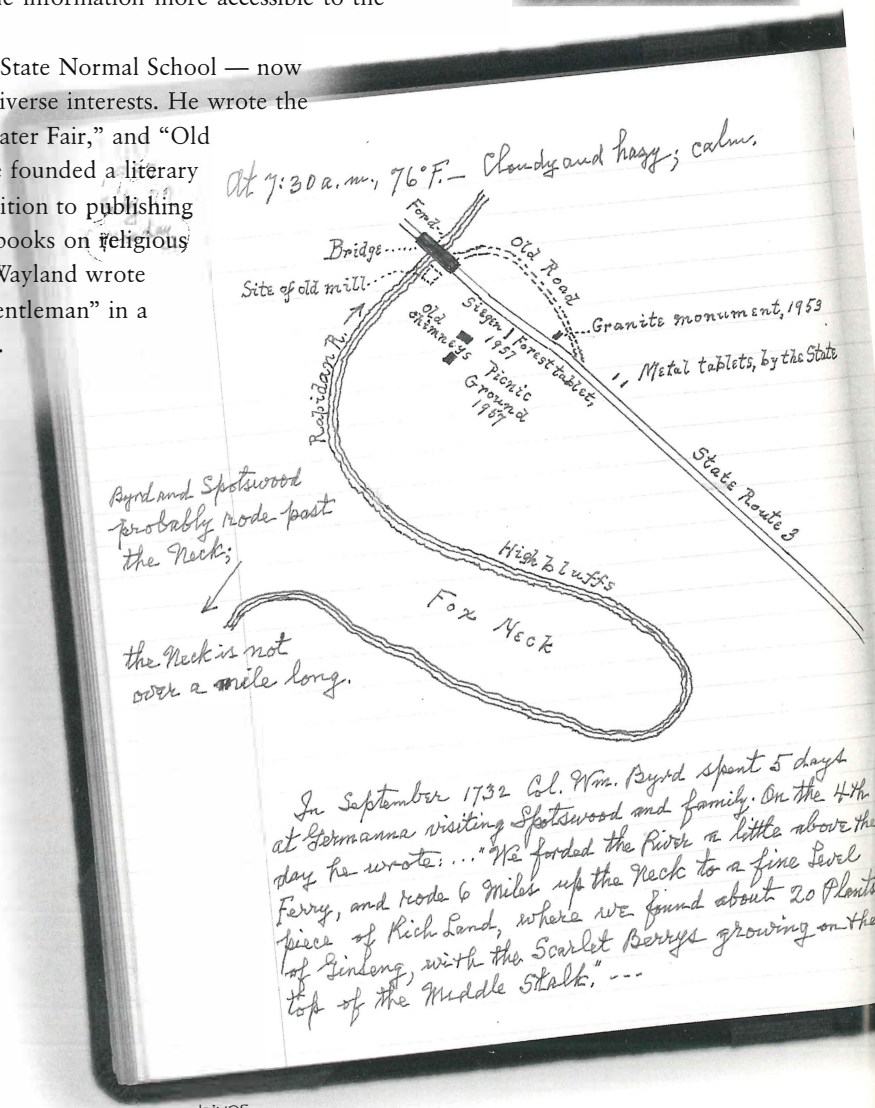 e information more accessible to the
State Normal School — now
iverse interests. He wrote the
ater Fair,” and “Old
e founded a literary
ition to publishing
books on religious
Wayland wrote
entleman” in a
.
At 7:30 a.m., 76°F. — Cloudy and hazy; calm.
Ford
Bridge
Old Road
Site of old mill
Granite monument, 1953
Old
chimneys
Siegen
1957
Forest tablet,
Metal tablets, by the State
Picnic
Ground
1957
Rapidan R.
State Route 3
Byrd and Spotswood
probably rode past
the Neck;
High bluffs
Fox Neck
the Neck is not
over a mile long.
In September 1732 Col. Wm. Byrd spent 5 days
at Germanna visiting Spotswood and family. On the 4th
day he wrote: ... "We forded the River a little above the
Ferry, and rode 6 Miles up the Neck to a fine Level
piece of Rich Land, where we found about 20 Plants
of Ginseng, with the Scarlet Berrys growing on the
top of the Middle Stalk." ---